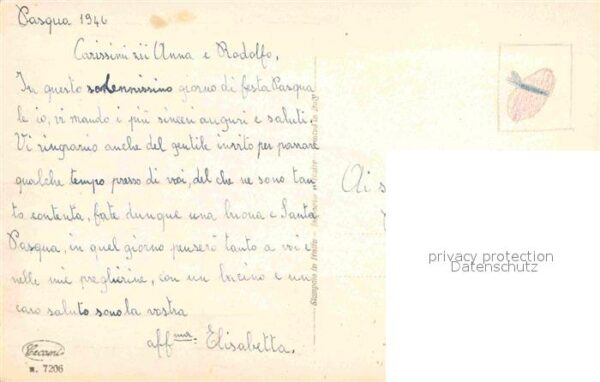 Pasqua 1946
Carissimi zii Anna e Rodolfo,
In questo solennissimo giorno di festa Pasqua
le io, vi mando i più sinceri auguri e saluti.
Vi ringrazio anche del gentile invito per passare
qualche tempo presso di voi, del che ne sono tan
to contenta, fate dunque una buona e Santa
Pasqua, in quel giorno penserò tanto a voi e
nelle mie preghierine, con un bacino e un
caro saluto sono la vostra
aff.ma Elisabetta.
Cecami
N. 7206
Stampato in Italia
Printed in Italy
Ai s
privacy protection
Datenschutz